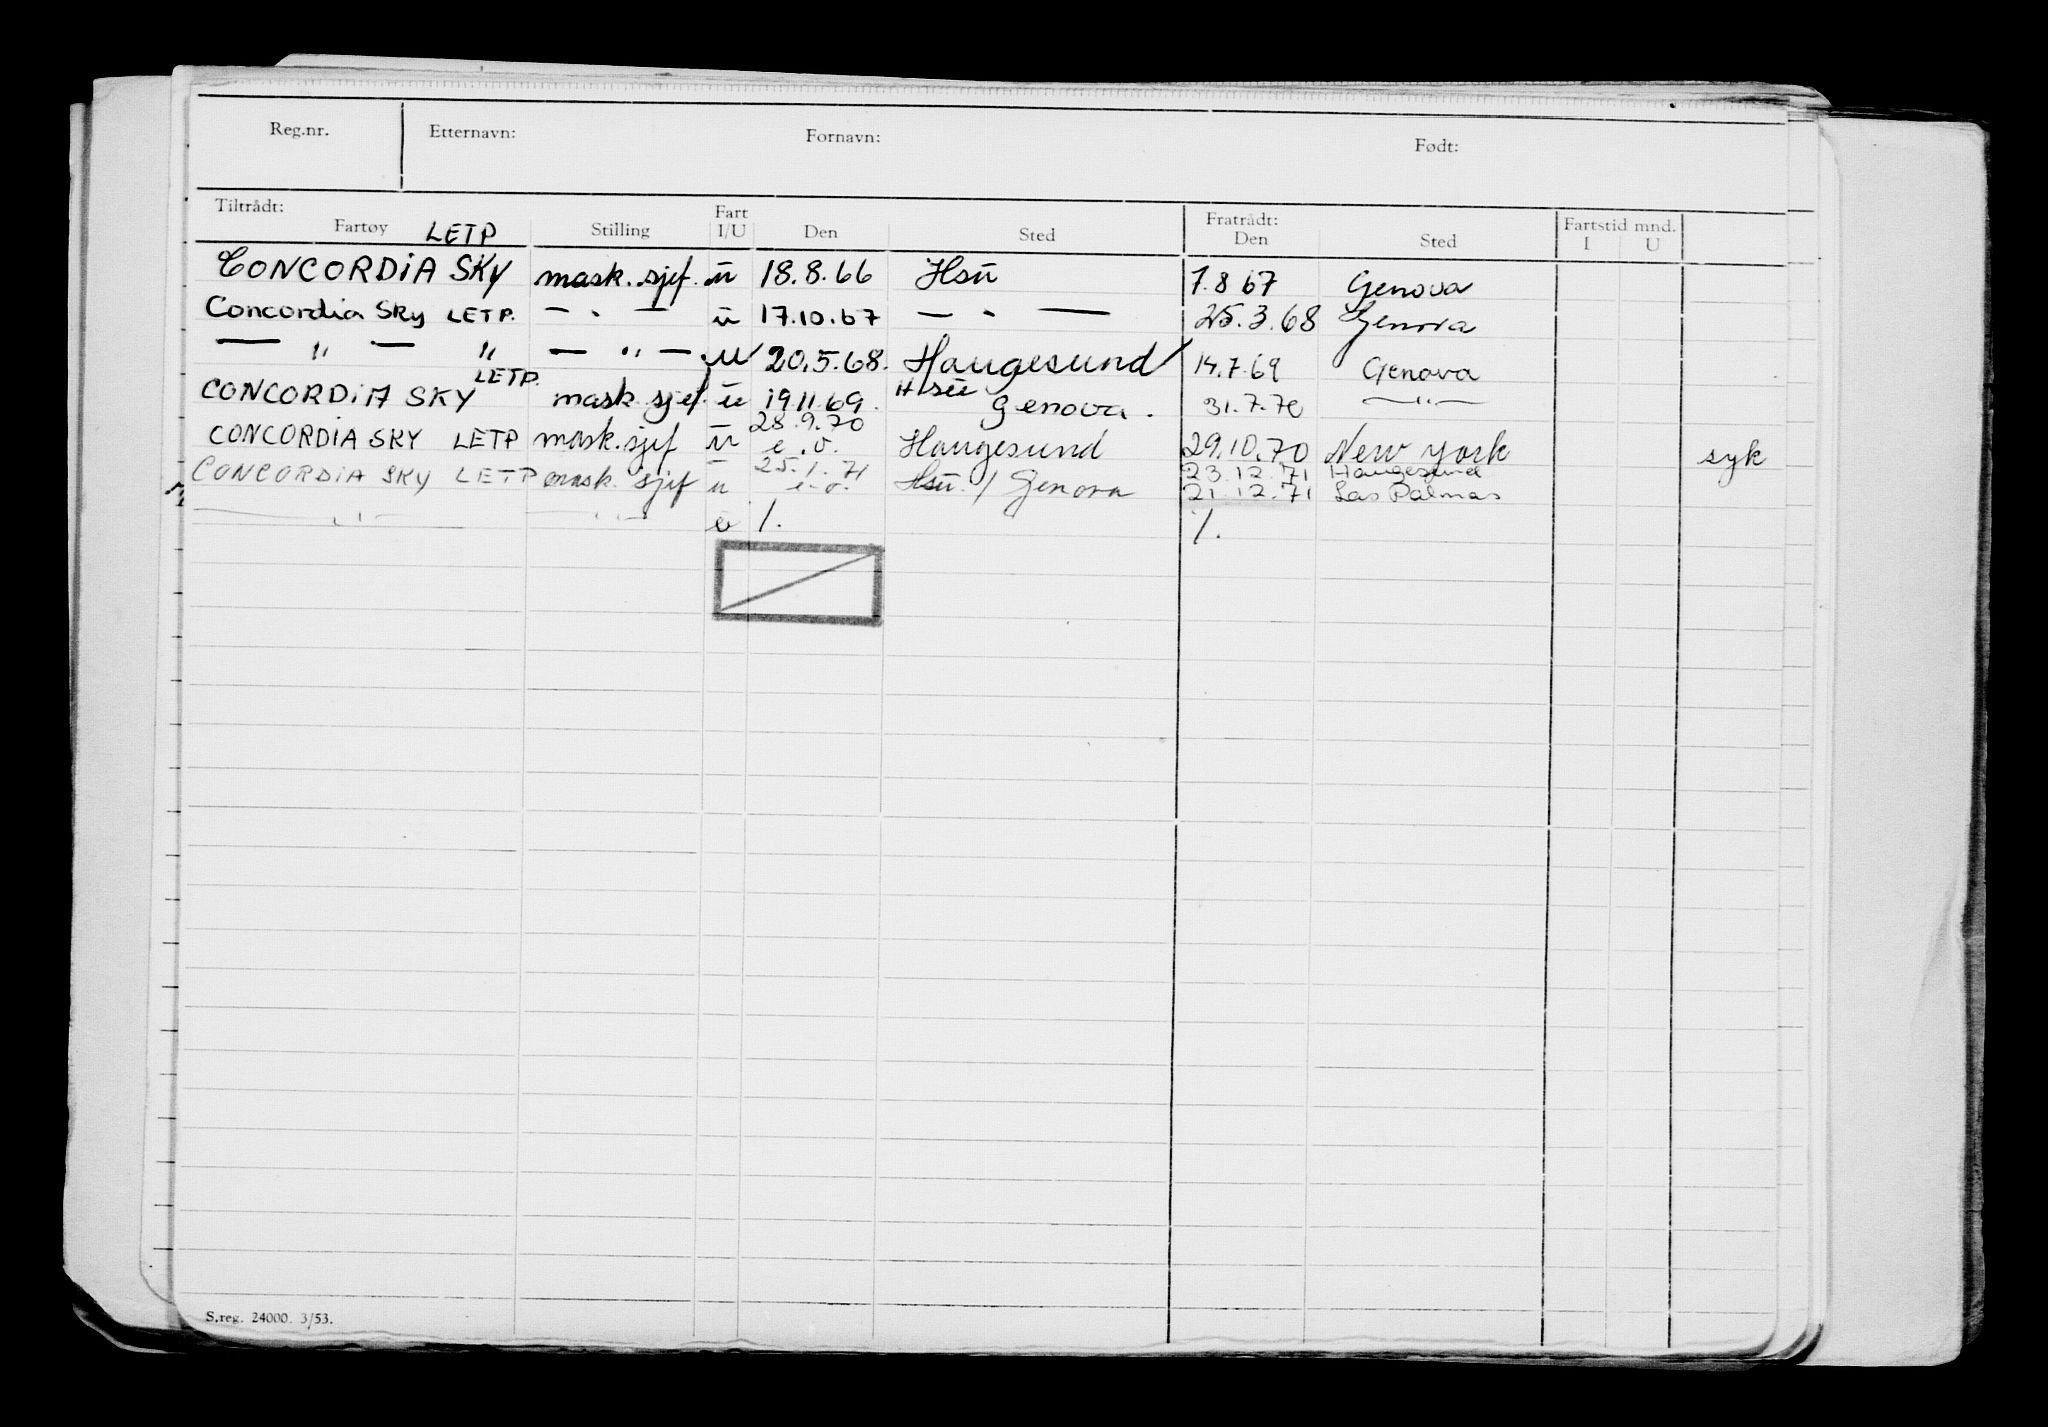 Reg.nr. Etternavn: Fornavn: Født:
Tiltrådt: Fratrådt:
Fartøy LETP Stilling Fart I/U Den Sted Den Sted Fartstid mnd. I U
CONCORDIA SKY mask.sjef. ū 18.8.66 Hsū 7.8 67 Genova
Concordia Sky LETP. — " — ū 17.10.67 — " — 25.3.68 Genova
— " — " — " — U 20.5.68. Haugesund 14.7.69 Genova
CONCORDIA SKY LETP. mask sjef. ū 19.11.69. Hsū Genova. 31.7.70 — " —
CONCORDIA SKY LETP mask.sjef ū 28.9.70 e.o. Haugesund 29.10.70 New York syk
CONCORDIA SKY LETP mask. sjef ū 25.1.71 e.o. Hsū. / Genova 23.12.71 Haugesund
21.12.71 Las Palmas
— " — — " — ū /. /.
S.reg. 24000. 3/53.